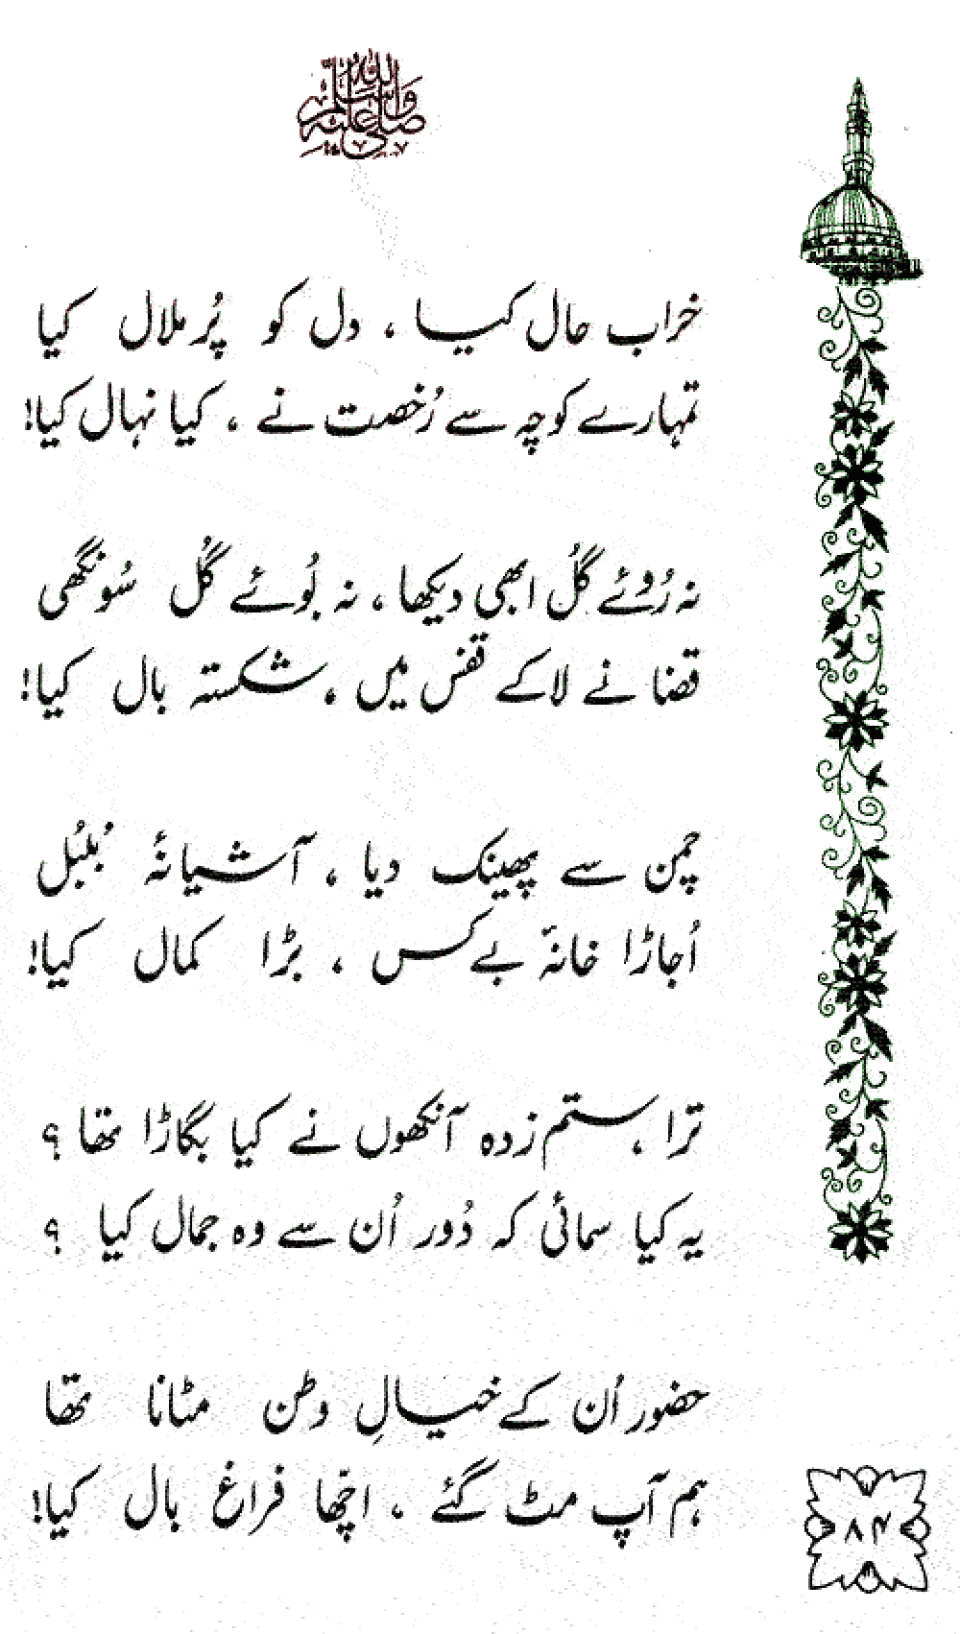 صلی اللہ علیہ وسلم
خراب حال کیا ، دل کو پُر ملال کیا
تمہارے کوچہ سے رُخصت نے ، کیا نہال کیا!
نہ رُوئے گُل ابھی دیکھا ، نہ بُوئے گُل سُونگھی
قضا نے لا کے قفس میں ، شکستہ بال کیا!
چمن سے پھینک دیا ، آشیانۂ بُلبُل
اُجاڑا خانۂ بے کس ، بڑا کمال کیا!
ترا ، ستم زدہ آنکھوں نے کیا بگاڑا تھا ؟
یہ کیا سمائی کہ دُور اُن سے وہ جمال کیا ؟
حضور اُن کے خیالِ وطن مٹانا تھا
ہم آپ مٹ گئے ، اچّھا فراغ بال کیا!
۸۴